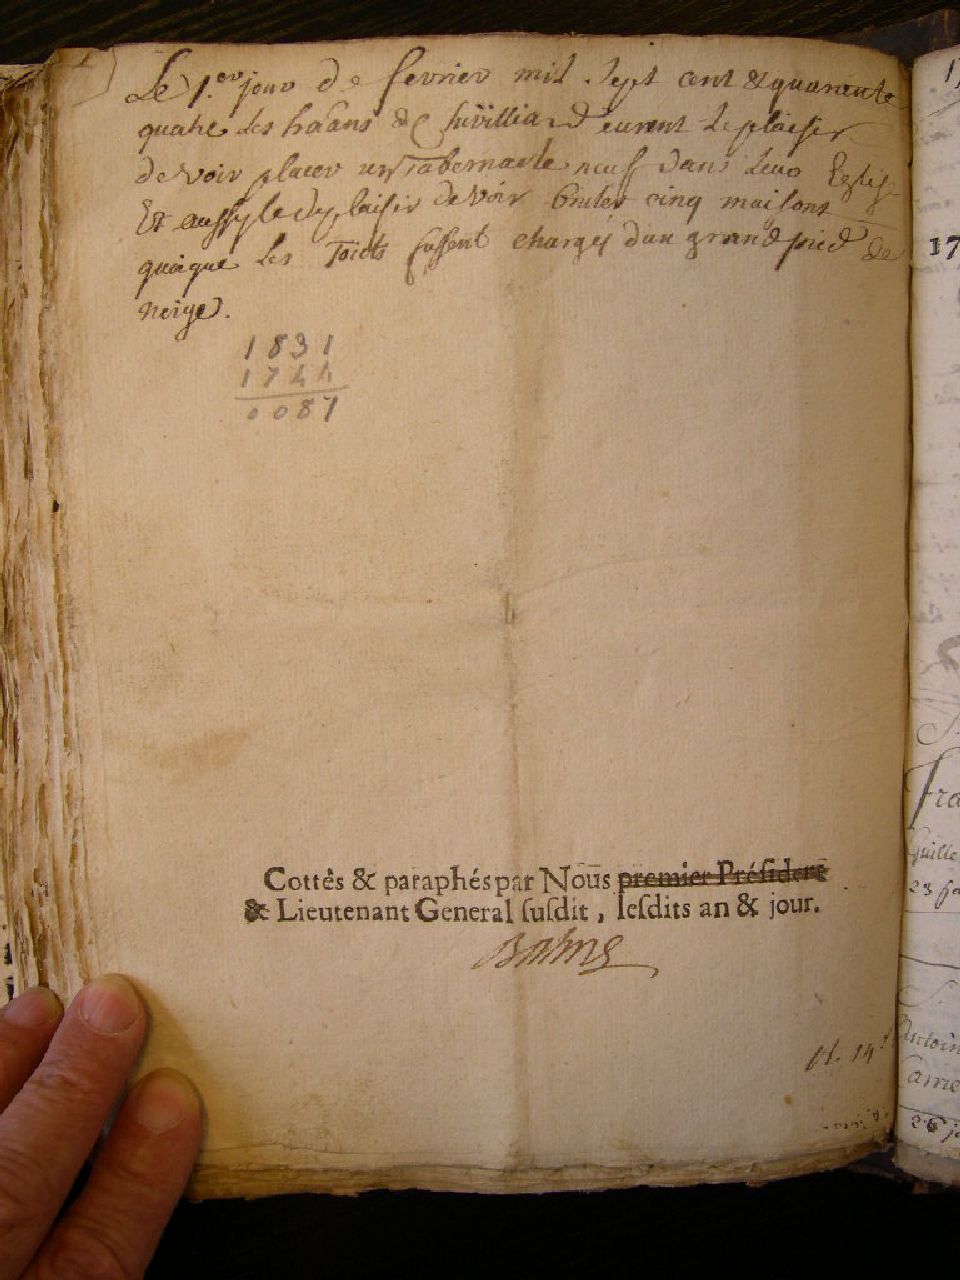 Le 1.er jour de fevrier mil sept cent & quarante
quatre les haans de Suvilliard eurent le plaisir
de voir placer un Tabernacle neuf dans leur Eglise
Et aussy le deplaisir de voir bruler cinq maisons
quoique les Toicts fussent chargés d'un grand pied de
neige.
1831
1744
0087
Cottès & paraphés par Nous premier Président
& Lieutenant General susdit, lesdits an & jour.
17
Fra
23 ja
Antoin
26 j